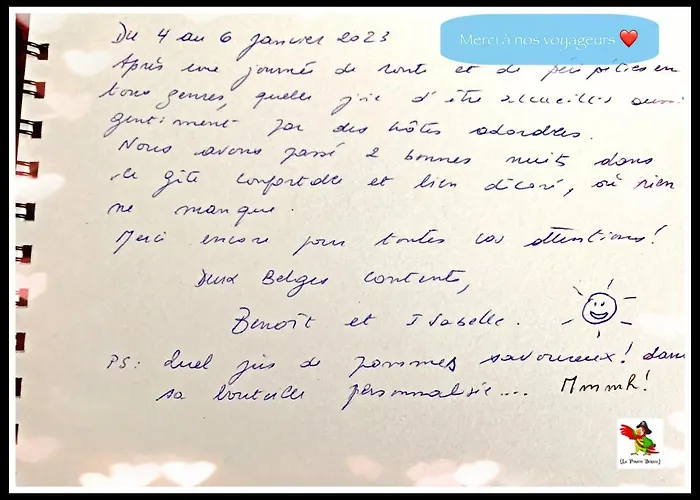 Du 4 au 6 janvier 2023
Merci à nos voyageurs ❤️
Après une journée de route et de péripéties en
tous genres, quelle joie d'être accueillis aussi
gentiment par des hôtes adorables.
Nous avons passé 2 bonnes nuits dans
ce gîte confortable et bien décoré, où rien
ne manque.
Merci encore pour toutes vos attentions!
Deux Belges contents,
Benoît et Isabelle.
PS: Quel jus de pommes savoureux! dans
sa bouteille personnalisée... Mmmh!